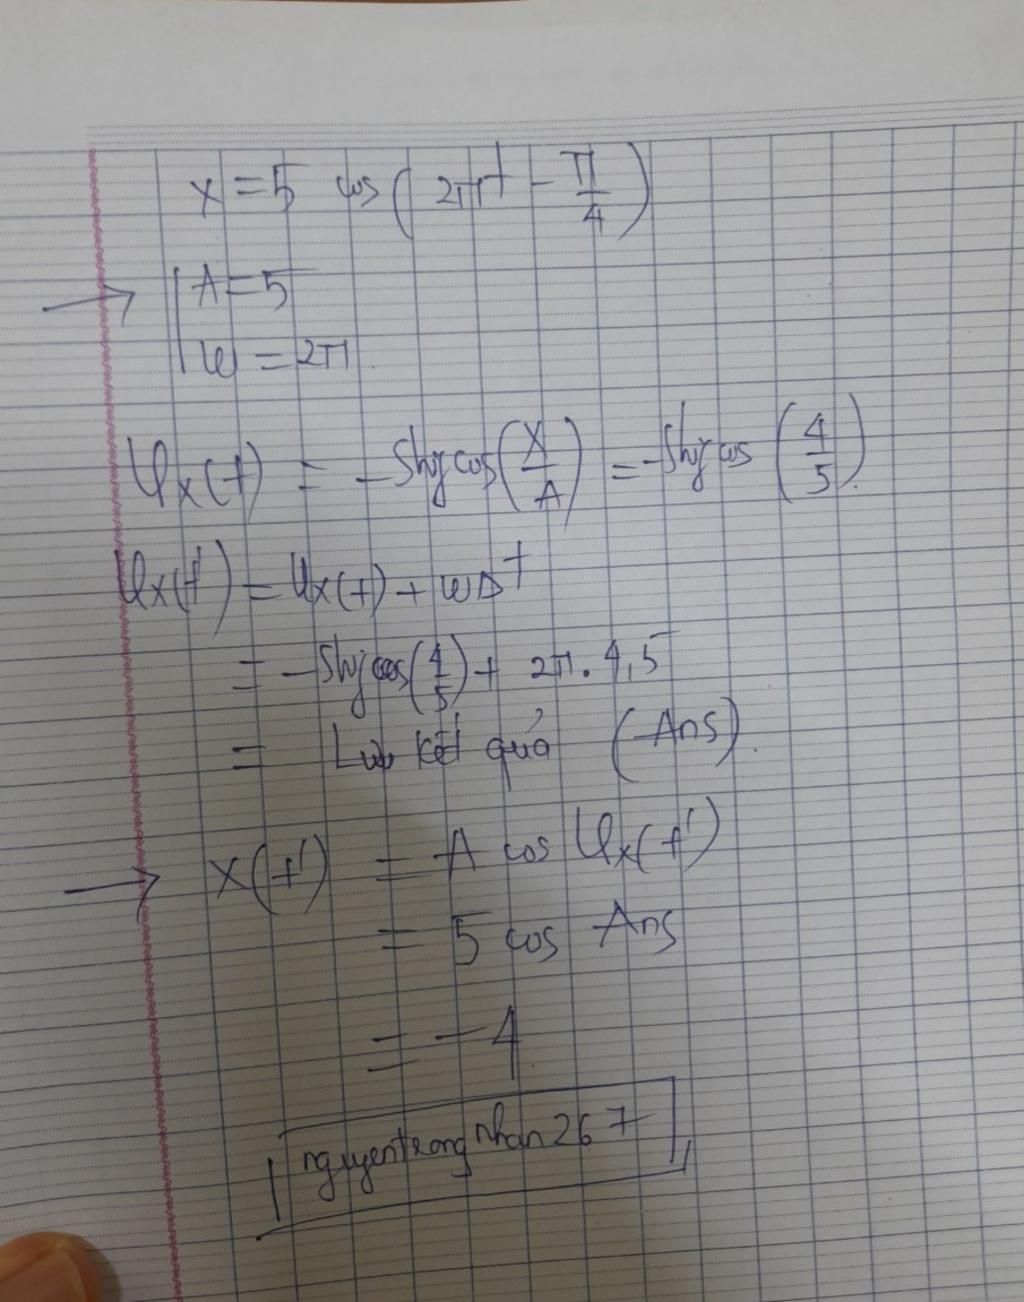 x = 5 cos(2πt - π/4)
→ | A = 5
ω = 2π
φx(t) = -Shift cos(x/A) = -Shift cos(4/5).
φx(t') = φx(t) + ωΔt
= -Shift cos(4/5) + 2π.4,5
= Lưu kết quả (Ans).
→ x(t') = A cos φx(t')
= 5 cos Ans
= -4
nguyentrongnhan267